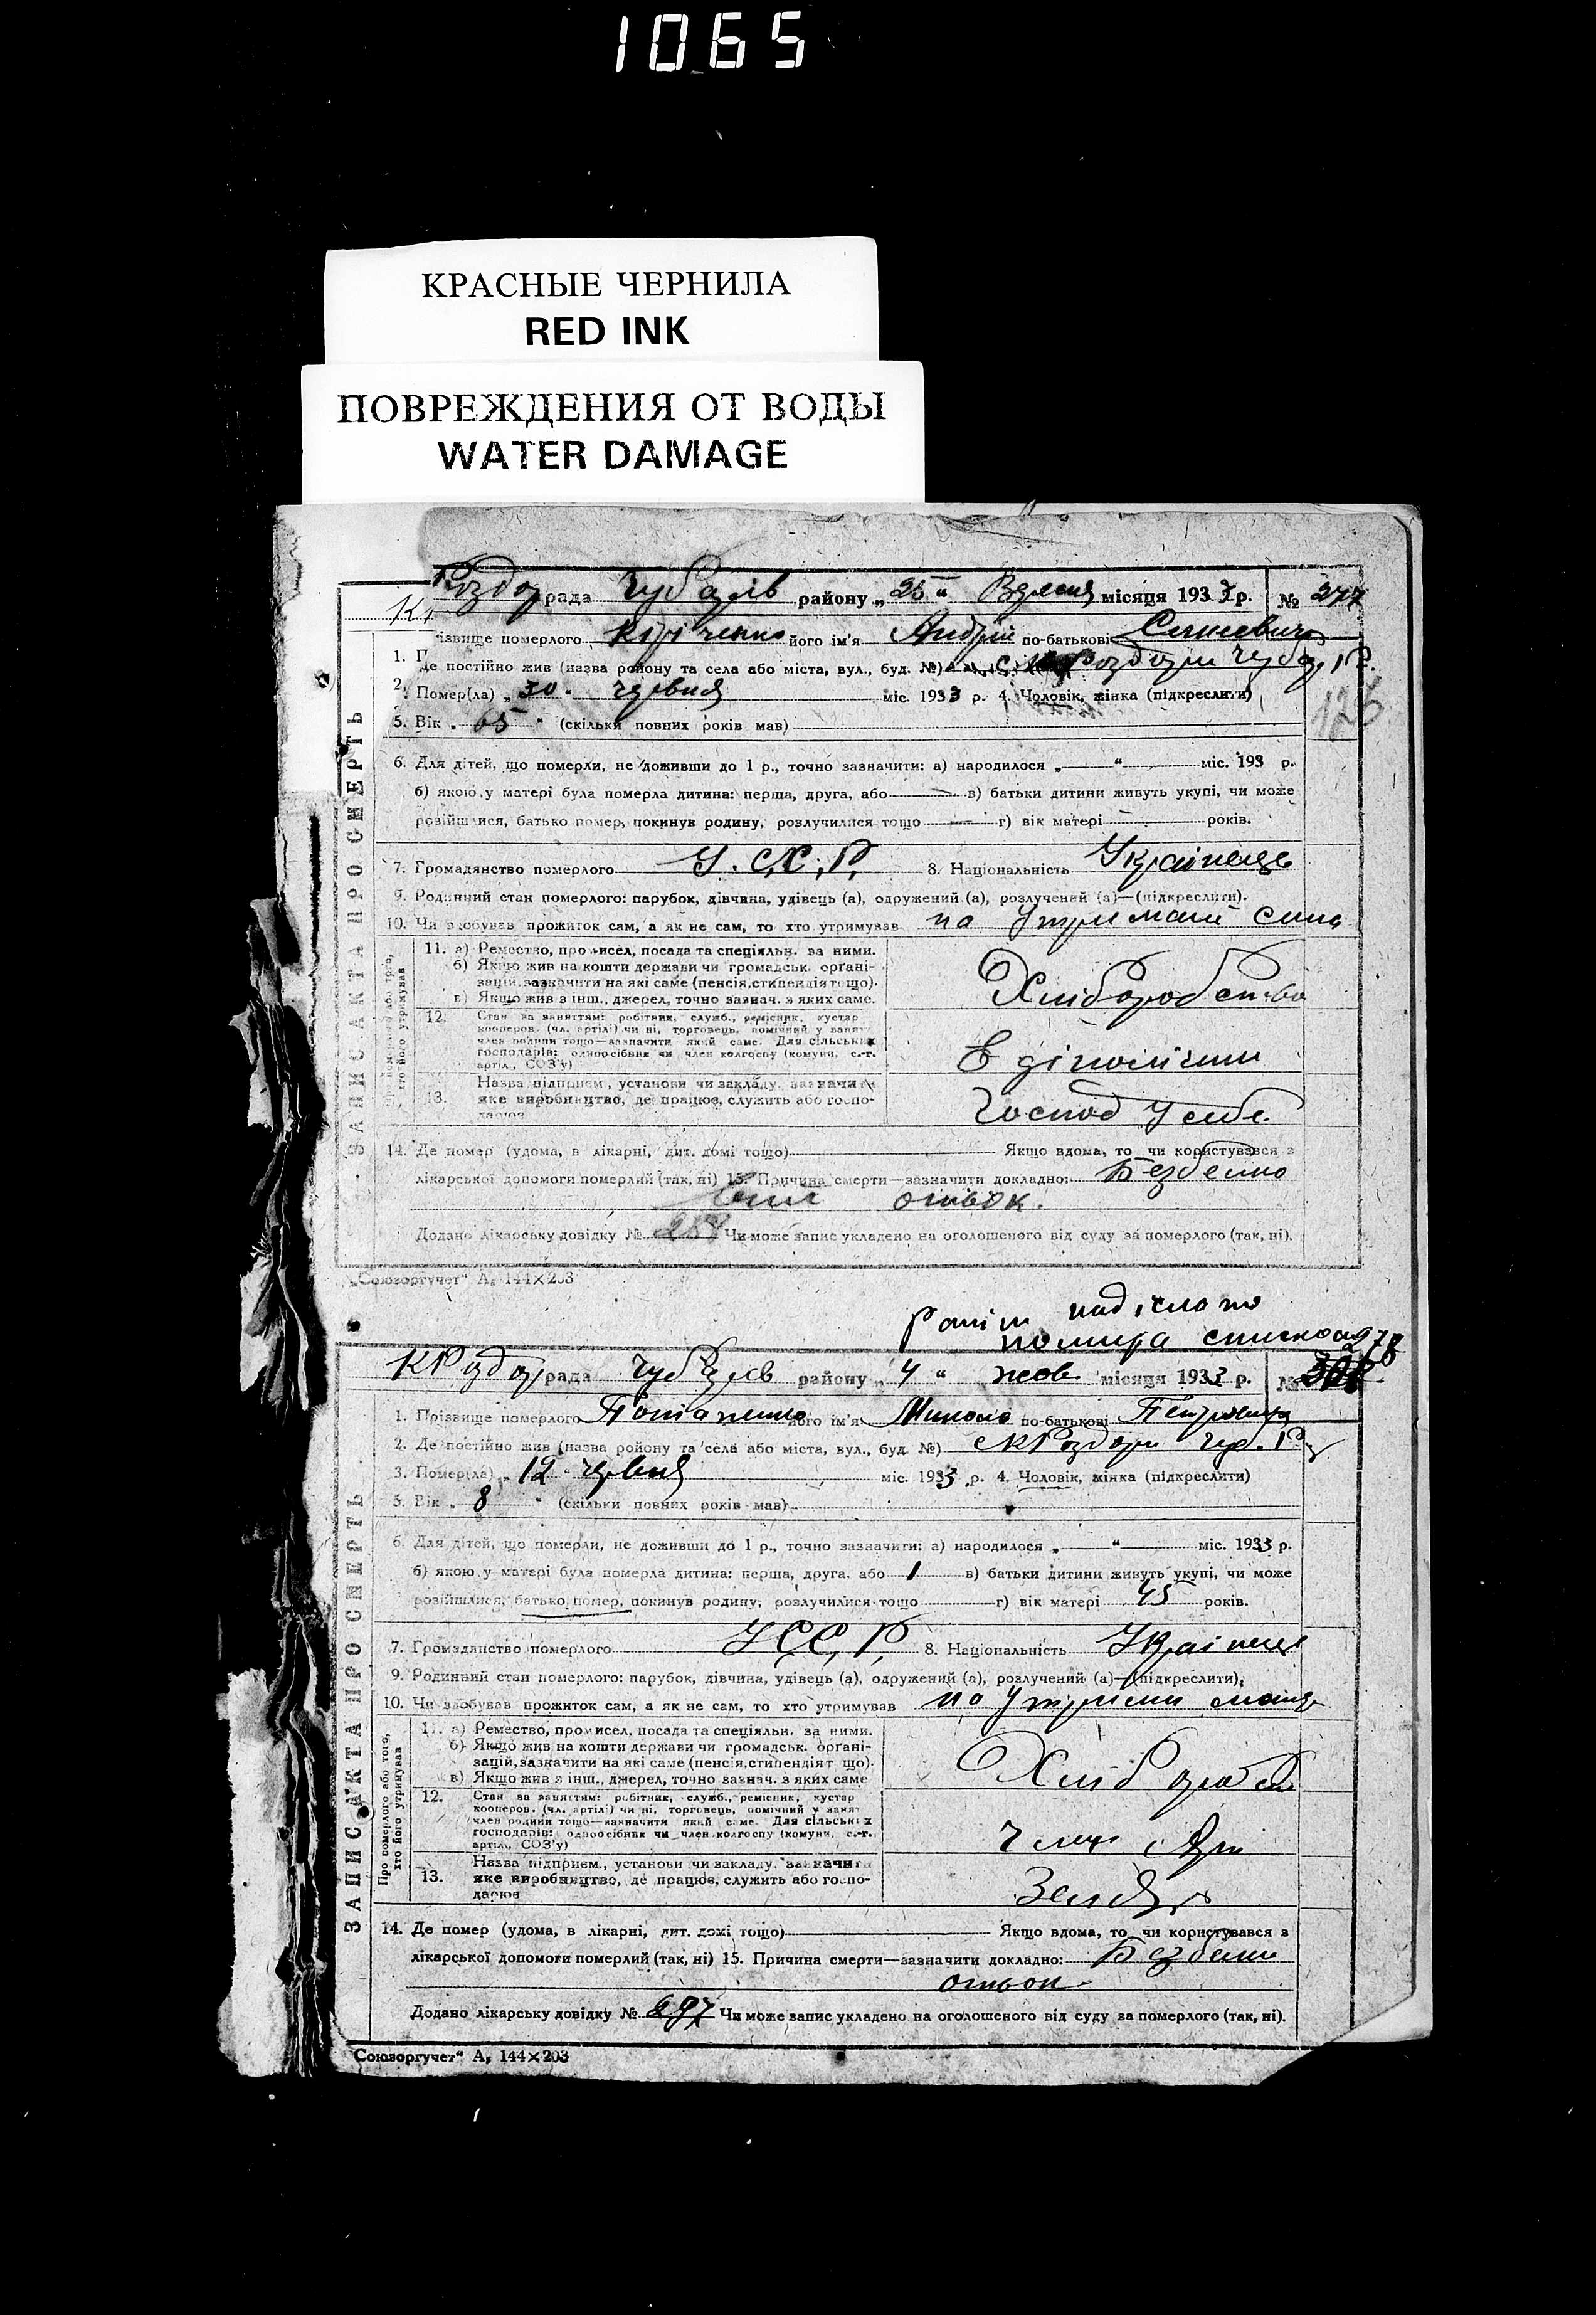 1065
КРАСНЫЕ ЧЕРНИЛА
RED INK
ПОВРЕЖДЕНИЯ ОТ ВОДЫ
WATER DAMAGE
ЗАПИС АКТА ПРО СМЕРТЬ
Роздор рада Чуб району „25“ Вресня місяця 1933 р. № 277
ізвище померлого його ім'я Андрій по-батькові
1. Г
де постійно жив (назва району та села або міста, вул., буд. №) Роздори
2. Помер(ла) „30“ червня міс. 1933 р. 4. Чоловік, жінка (підкреслити)
126
5. Вік „65“ (скільки повних років мав)
6. Для дітей, що померли, не доживши до 1 р., точно зазначити: а) народилося „ “ міс. 193 р.
б) якою у матері була померла дитина: перша, друга, або в) батьки дитини живуть укупі, чи може
розійшлися, батько помер, покинув родину, розлучилися тощо г) вік матері років.
7. Громадянство померлого У.С.С.Р. 8. Національність Українець
9. Родинний стан померлого: парубок, дівчина, удівець (а), одружений (а), розлучений (а)—(підкреслити).
10. Чи здобував прожиток сам, а як не сам, то хто утримував на утримані сина
11. а) Ремество, промисел, посада та спеціяльн. за ними.
б) Якщо жив на кошти держави чи громадськ. органі-
зацій, зазначити на які саме (пенсія, стипендія тощо).
в) Якщо жив з інш., джерел, точно зазнач. з яких саме.
Хліборобство
12. Стан за заняттям: робітник, служб., ремісник, кустар
кооперов. (чл. артілі) чи ні, торговець, помічний у занят
член родини тощо—зазначити який саме. Для сільських
господарів: одноосібник чи член колгоспу (комуни, с.-г.
артіл., СОЗ'у)
13. Назва підприєм., установи чи закладу. зазначити
яке виробництво, де працює, служить або госпо-
дарює
Господ у себе
14. Де помер (удома, в лікарні, дит. домі тощо) Якщо вдома, то чи користувався з
лікарської допомоги померлий (так, ні) 15. Причина смерти—зазначити докладно:
Додано лікарську довідку № Чи може запис укладено на оголошеного від суду за померлого (так, ні).
„Союзоргучет“ А₅ 144×203
надіслано
278
ЗАПИС АКТА ПРО СМЕРТЬ
рада Чуб району „4“ жов місяця 1933 р. №
1. Прізвище померлого Потапенко його ім'я Микола по-батькові Петрович
2. Де постійно жив (назва району та села або міста, вул., буд. №) Роздори Чуб. Р
3. Помер(ла) „12“ червня міс. 1933 р. 4. Чоловік, жінка (підкреслити)
5. Вік „8“ (скільки повних років мав)
6. Для дітей, що померли, не доживши до 1 р., точно зазначити: а) народилося „ “ міс. 1933 р.
б) якою у матері була померла дитина: перша, друга, або 1 в) батьки дитини живуть укупі, чи може
розійшлися, батько помер, покинув родину, розлучилися тощо г) вік матері 45 років.
7. Громадянство померлого УССР 8. Національність Українець
9. Родинний стан померлого: парубок, дівчина, удівець (а), одружений (а), розлучений (а)—(підкреслити).
10. Чи здобував прожиток сам, а як не сам, то хто утримував на утримани
Про померлого або того, хто його утримував
11. а) Ремество, промисел, посада та спеціяльн. за ними.
б) Якщо жив на кошти держави чи громадськ. органі-
зацій, зазначити на які саме (пенсія, стипендія т що).
в) Якщо жив з інш., джерел, точно зазнач. з яких саме
12. Стан за заняттям: робітник, служб., ремісник, кустар
кооперов. (чл. артілі) чи ні, торговець, помічний у занят
член родини тощо—зазначити який саме. Для сільських
господарів: одноосібник чи член колгоспу (комуни, с.-г.
артіл., СОЗ'у)
13. Назва підприєм., установи чи закладу. зазначити
яке виробництво, де працює, служить або госпо-
дарює
14. Де помер (удома, в лікарні, дит. домі тощо) Якщо вдома, то чи користувався з
лікарської допомоги померлий (так, ні) 15. Причина смерти—зазначити докладно:
Додано лікарську довідку № 297 Чи може запис укладено на оголошеного від суду за померлого (так, ні).
„Союзоргучет“ А₅ 144×203